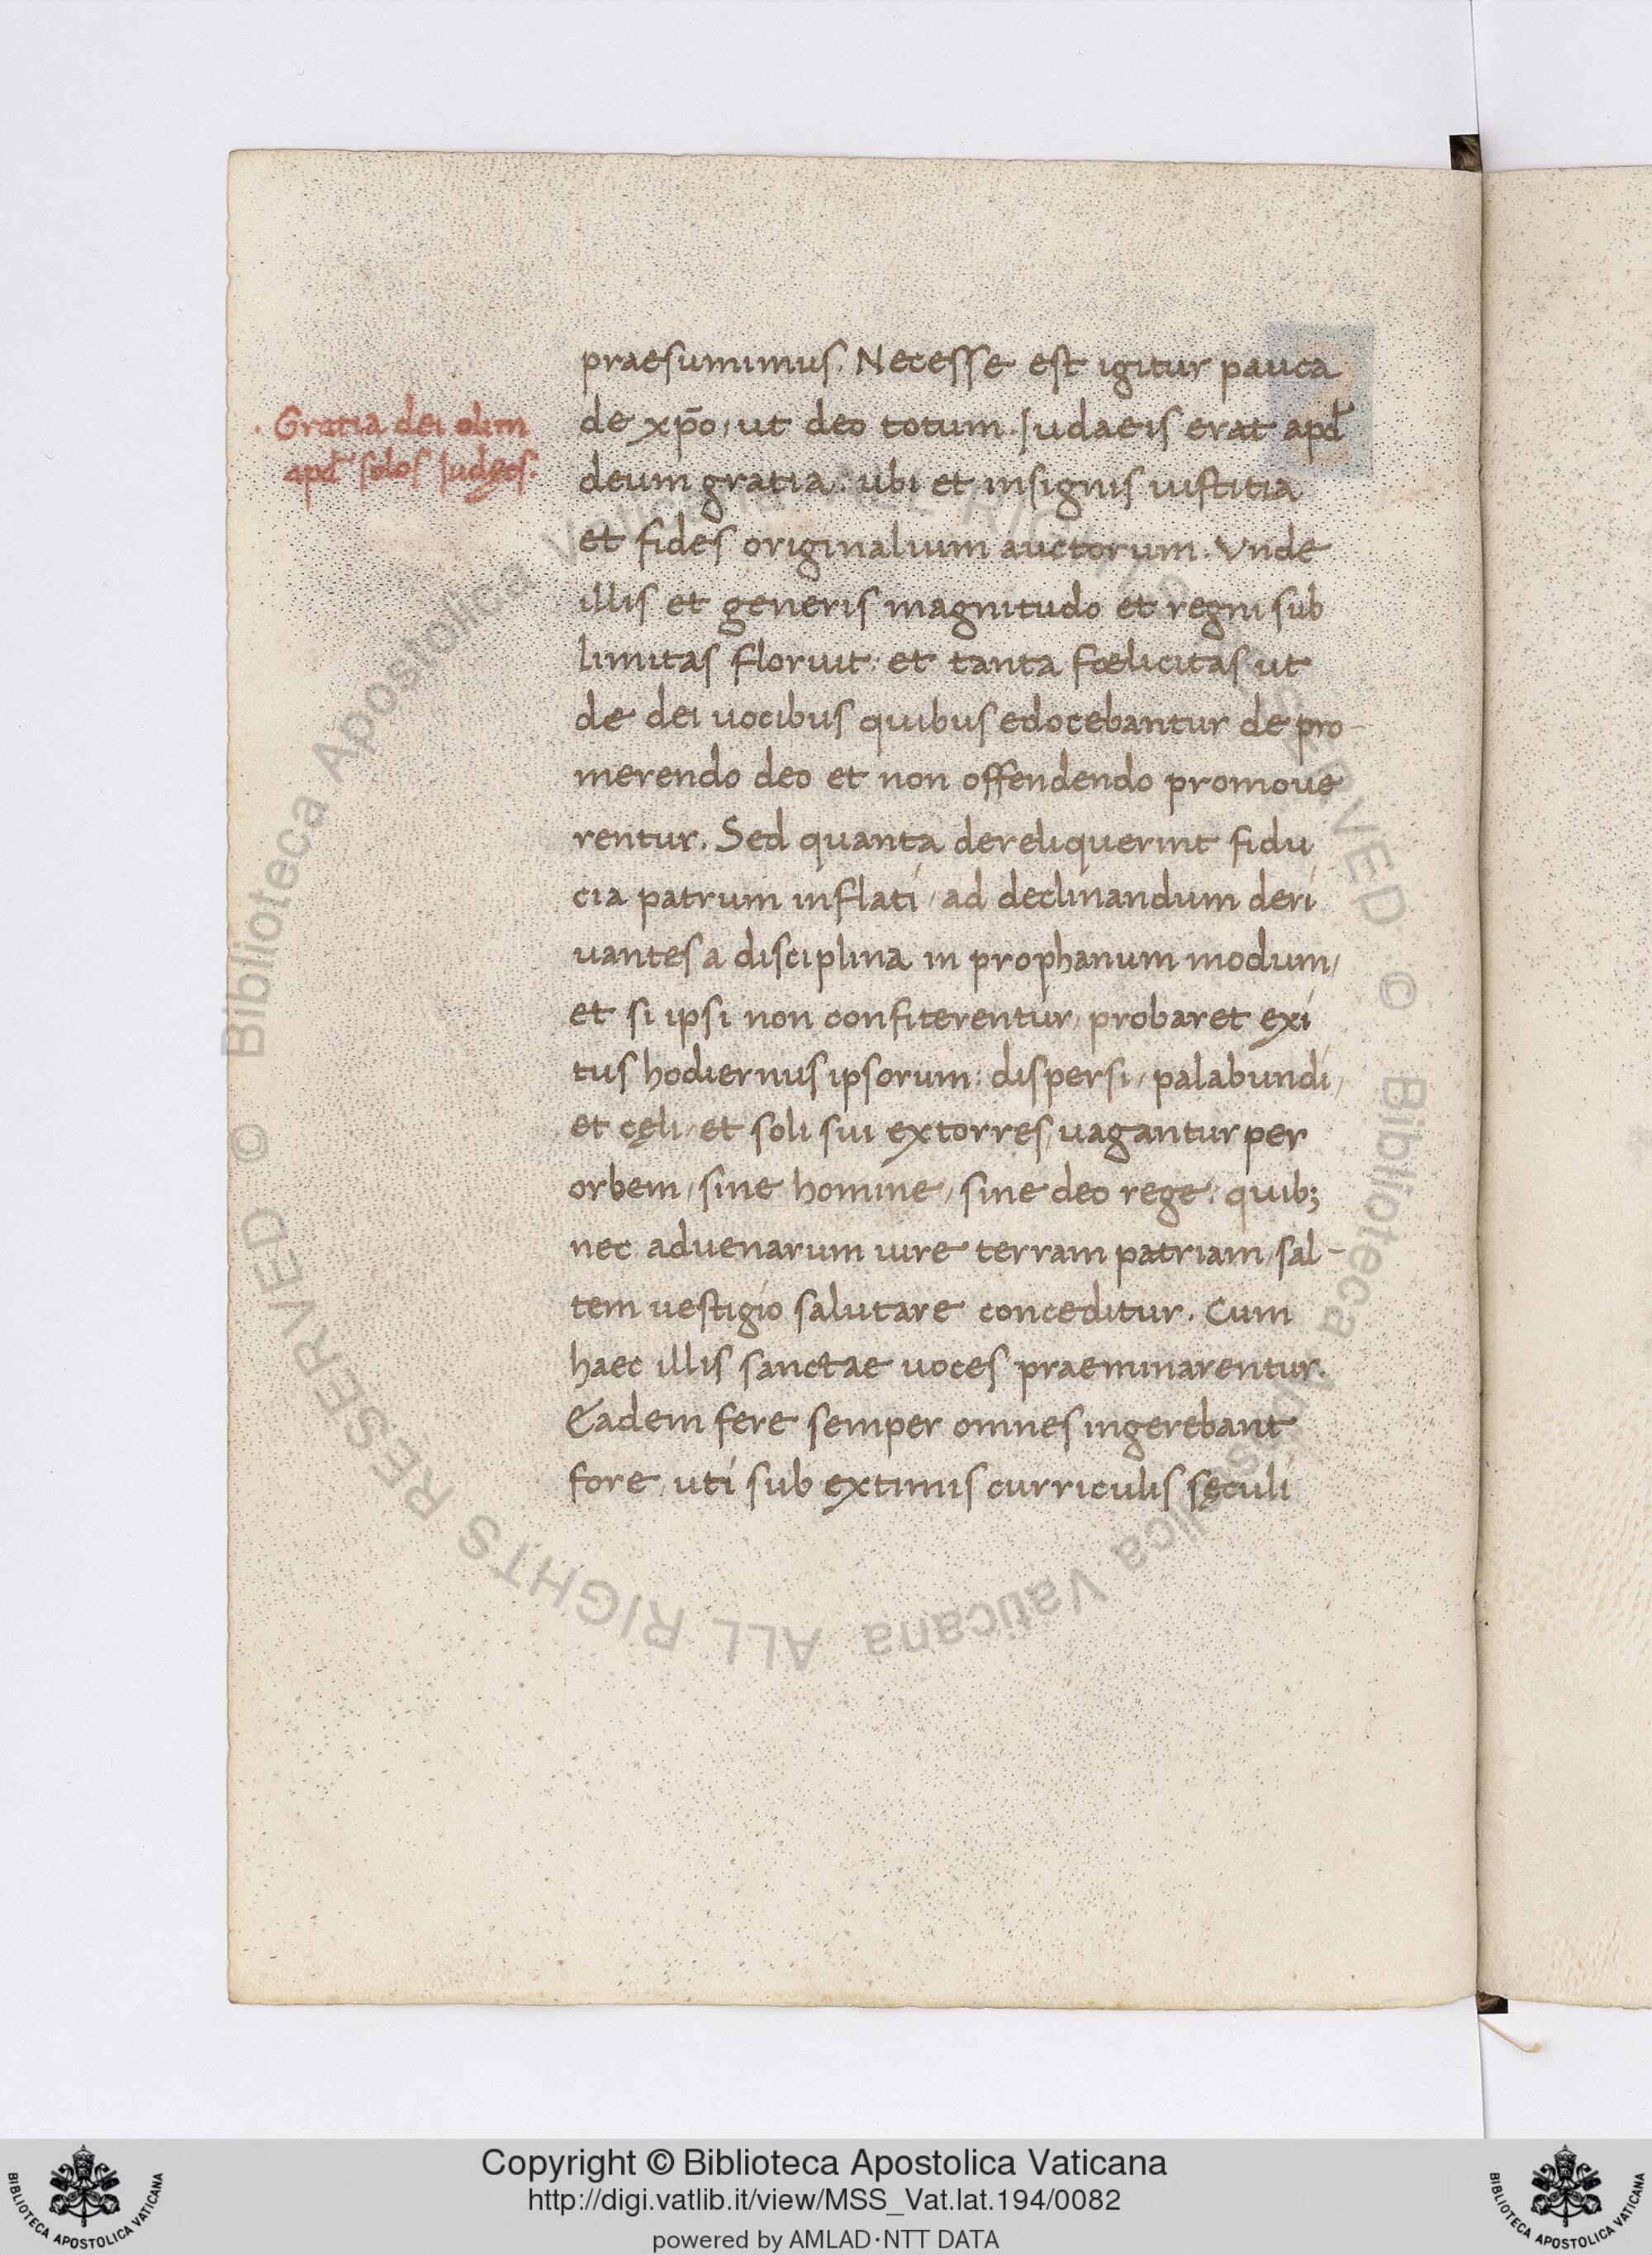 praesumimus. Necesse est igitur pauca
de xp̄o, ut deo totum. Judaeis erat apđ
deum gratia: ubi et insignis iustitia
et fides originalium auctorum. Vnde
illis et generis magnitudo et regni sub
limitas floruit: et tanta fœlicitas ut
de dei uocibus quibus edocebantur de pro-
merendo deo et non offendendo promoue
rentur. Sed quanta dereliquerint fidu
cia patrum inflati, ad declinandum deri
uantes a disciplina in prophanum modum,
et si ipsi non confiterentur, probaret exi
tus hodiernus ipsorum: dispersi, palabundi,
et cęli, et soli sui extorres, uagantur per
orbem, sine homine, sine deo rege: quib;
nec aduenarum iure terram patriam sal-
tem uestigio salutare conceditur. Cum
haec illis sanctae uoces praeminarentur.
Eadem fere semper omnes ingerebant
fore, uti sub extimis curriculis sęculi
. Gratia dei olim
apđ solos Judęos.
© Biblioteca Apostolica Vaticana ALL RIGHTS RESERVED
© Biblioteca Apostolica Vaticana ALL RIGHTS RESERVED
Copyright © Biblioteca Apostolica Vaticana
http://digi.vatlib.it/view/MSS_Vat.lat.194/0082
powered by AMLAD·NTT DATA
BIBLIOTECA APOSTOLICA VATICANA
BIBLIOTECA APOSTOLICA VATICANA